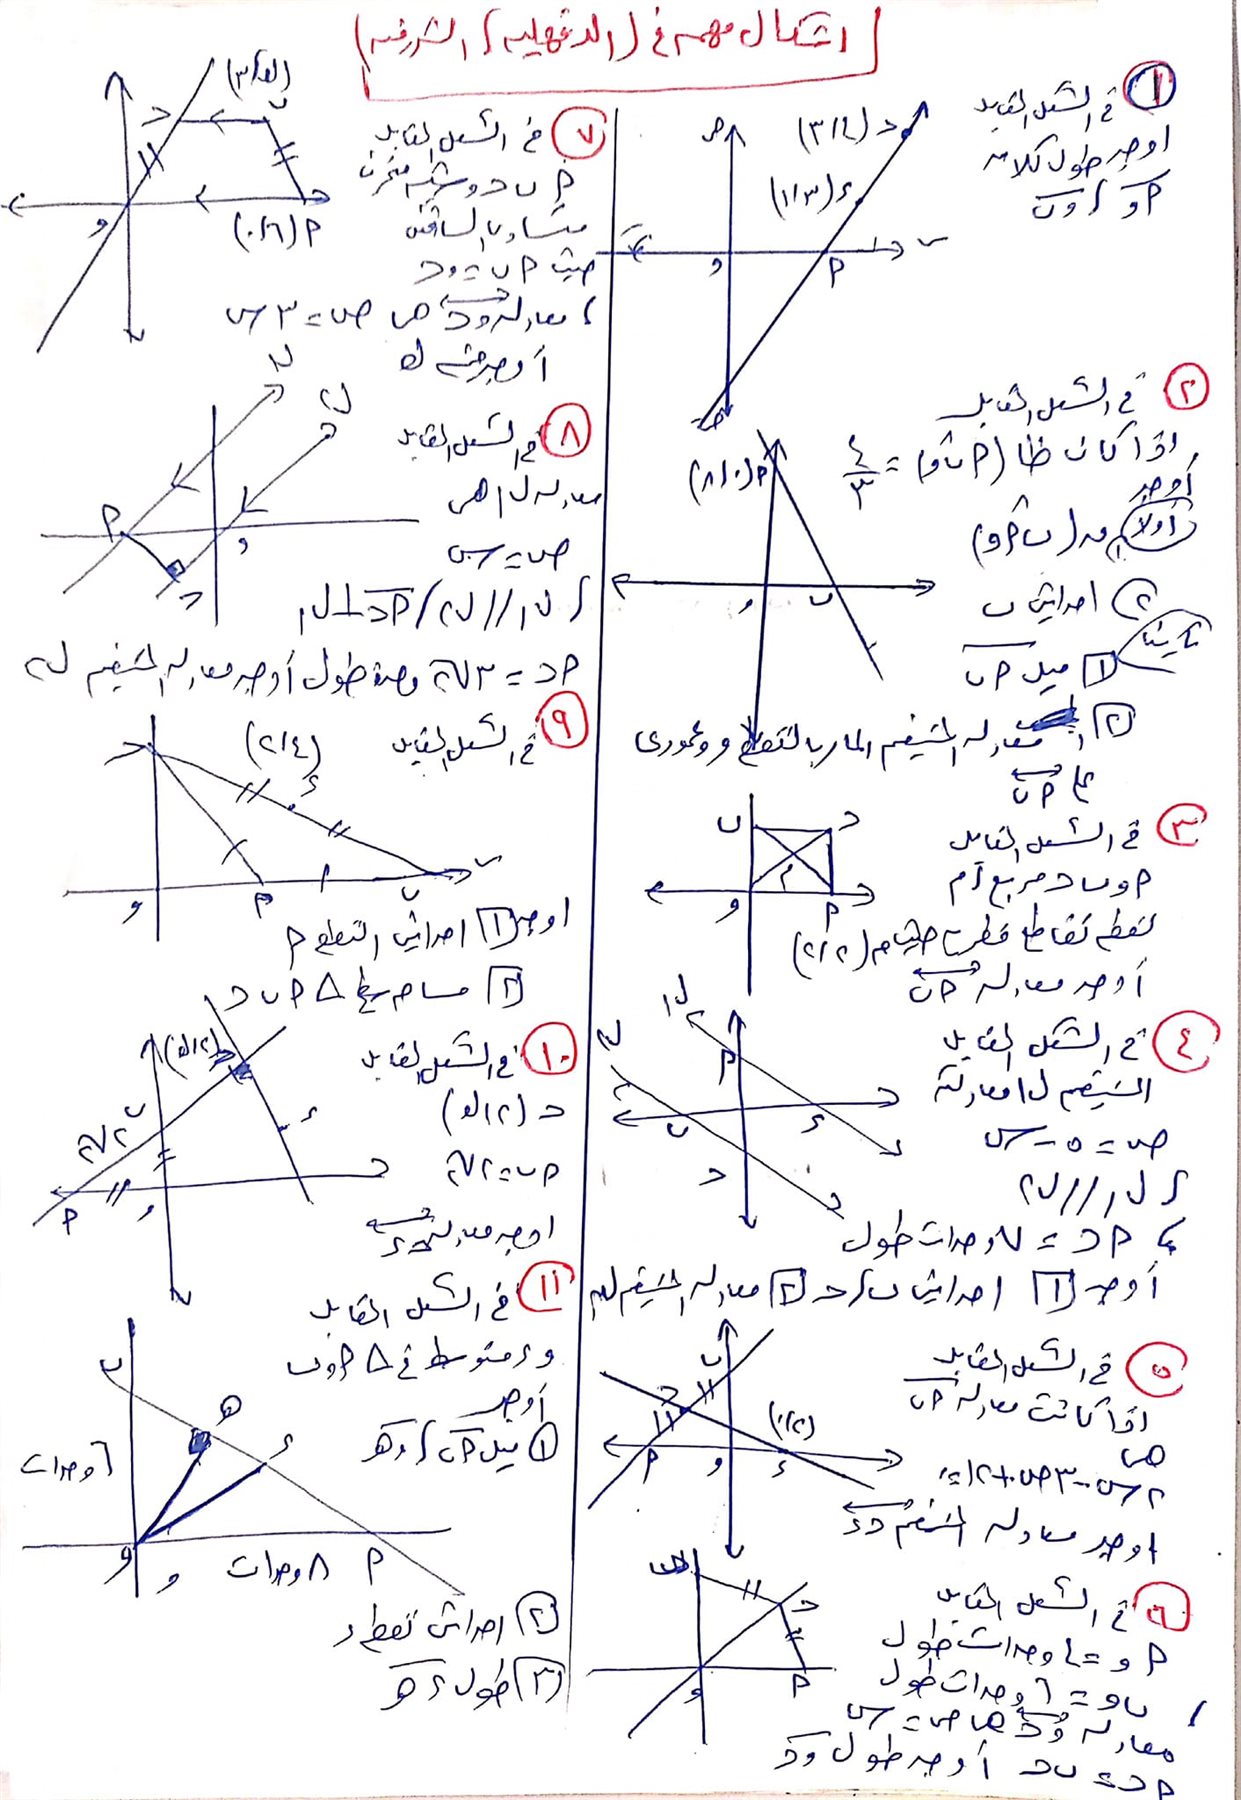 اشكال مهمه في (الدقهليه / الشرقيه)
١ في الشكل المقابل
اوجد طول كلا من
أو ، وب
ص
جـ (٤،٣)
د (٣،١)
س
و
أ
ب
٢ في الشكل المقابل
اذا كان ظا (أ ب و) = ٤/٣
أوجد
أولا ١ ق (ب أ و)
٢ احداثي ب
ثانيا ١ ميل أب
٢ معادلة المستقيم المار بالنقطة و وعمودي
على أب
أ (٠،٨)
و
ب
٣ في الشكل المقابل
أ و ب جـ مربع ، م
نقطة تقاطع قطريه حيث م (٢،٢)
أوجد معادلة أب
ب
جـ
م
و
أ
٤ في الشكل المقابل
المستقيم ل١ معادلته
ص = ٥ - س
، ل١ // ل٢
، أ جـ = ٧ وحدات طول
أوجد ١ احداثي ب ، جـ ٢ معادلة المستقيم ل٢
ل١
ل٢
أ
ب
د
جـ
٥ في الشكل المقابل
اذا كانت معادلة أب
هى
٢س - ٣ص + ١٢ = ٠
اوجد معادلة المستقيم جـ د
ب
جـ
(٢،٠)
أ
و
د
٦ في الشكل المقابل
أ و = ٤ وحدات طول
، ب و = ٦ وحدات طول
معادلة و جـ هى ص = س
أ جـ = ب جـ أوجد طول و جـ
ب
جـ
و
أ
٧ في الشكل المقابل
أ ب جـ و شبه منحرف
متساوي الساقين
حيث أ ب = و جـ
، معادلة و جـ هى ص = ٣س
أوجد قيمة ك
(ك،٣)
جـ
ب
و
أ (٦،٠)
٨ في الشكل المقابل
معادلة ل١ هى
ص = س
، ل١ // ل٢ ، أ جـ ⊥ ل١
أ جـ = ٣√٢ وحدة طول أوجد معادلة المستقيم ل٢
ل٢
ل١
أ
و
جـ
٩ في الشكل المقابل
(٤،٢)
جـ
د
س
و
أ
ب
اوجد ١ احداثي النقطة أ
٢ مساحة سطح Δ أ ب جـ
١٠ في الشكل المقابل
جـ (٢،ك)
أ ب = ٢√٢
اوجد معادلة جـ د
جـ (٢،ك)
ب
٢√٢
د
أ
و
١١ في الشكل المقابل
و د متوسط في Δ أ و ب
أوجد
١ ميل أب ، و هـ
٢ احداثي نقطة د
٣ طول د هـ
ب
هـ
د
٦ وحدات
و
٨ وحدات
أ